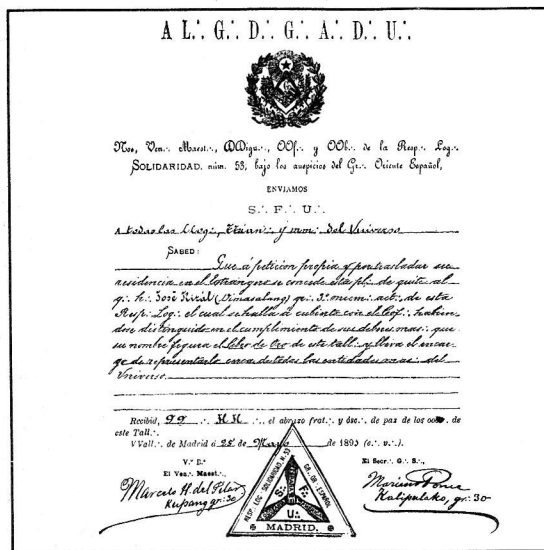 A L∴ G∴ D∴ G∴ A∴ D∴ U∴
Nos, Ven∴ Maest∴, DDign∴, OOf∴ y OOb∴ de la Resp∴ Log∴
SOLIDARIDAD, núm. 53, bajo los auspicios del Gr∴ Oriente Español,
ENVIAMOS
S∴ F∴ U∴
A todas las LLog∴, y mm∴ del Universo
SABED:
Que á peticion propia y por trasladar su
residencia en el Estrangero se concede esta pl∴ de quite al
q∴ h∴ José Rizal (Dimasalang) gr∴ 3∴ miem∴ act∴ de esta
Resp∴ Log∴ el cual se halla á cubierto con el tesof∴ habien-
dose distinguido en el cumplimiento de sus deberes mas∴ que
su nombre figura el libro de Oro de este tall∴ y lleva el encar-
go de representarla cerca de todas las entidades mas∴ del
Universo
Recibid, 99 ∴ HH ∴ el abrazo frat∴ y ósc∴ de paz de los de
este Tall∴
VVall∴ de Madrid á de Mayo de 189 (e∴ v∴)
V.º B.º
El Ven∴ Maest∴
El Secr∴ G∴ S∴
Marcelo H. del Pilar
Kupang gr∴ 30
Mariano Ponce
Kalipulako, gr∴ 30
RESP∴ LOG∴ SOLIDARIDAD N.53
GR∴ OR∴ ESPAÑOL
S∴ F∴
U∴
MADRID.